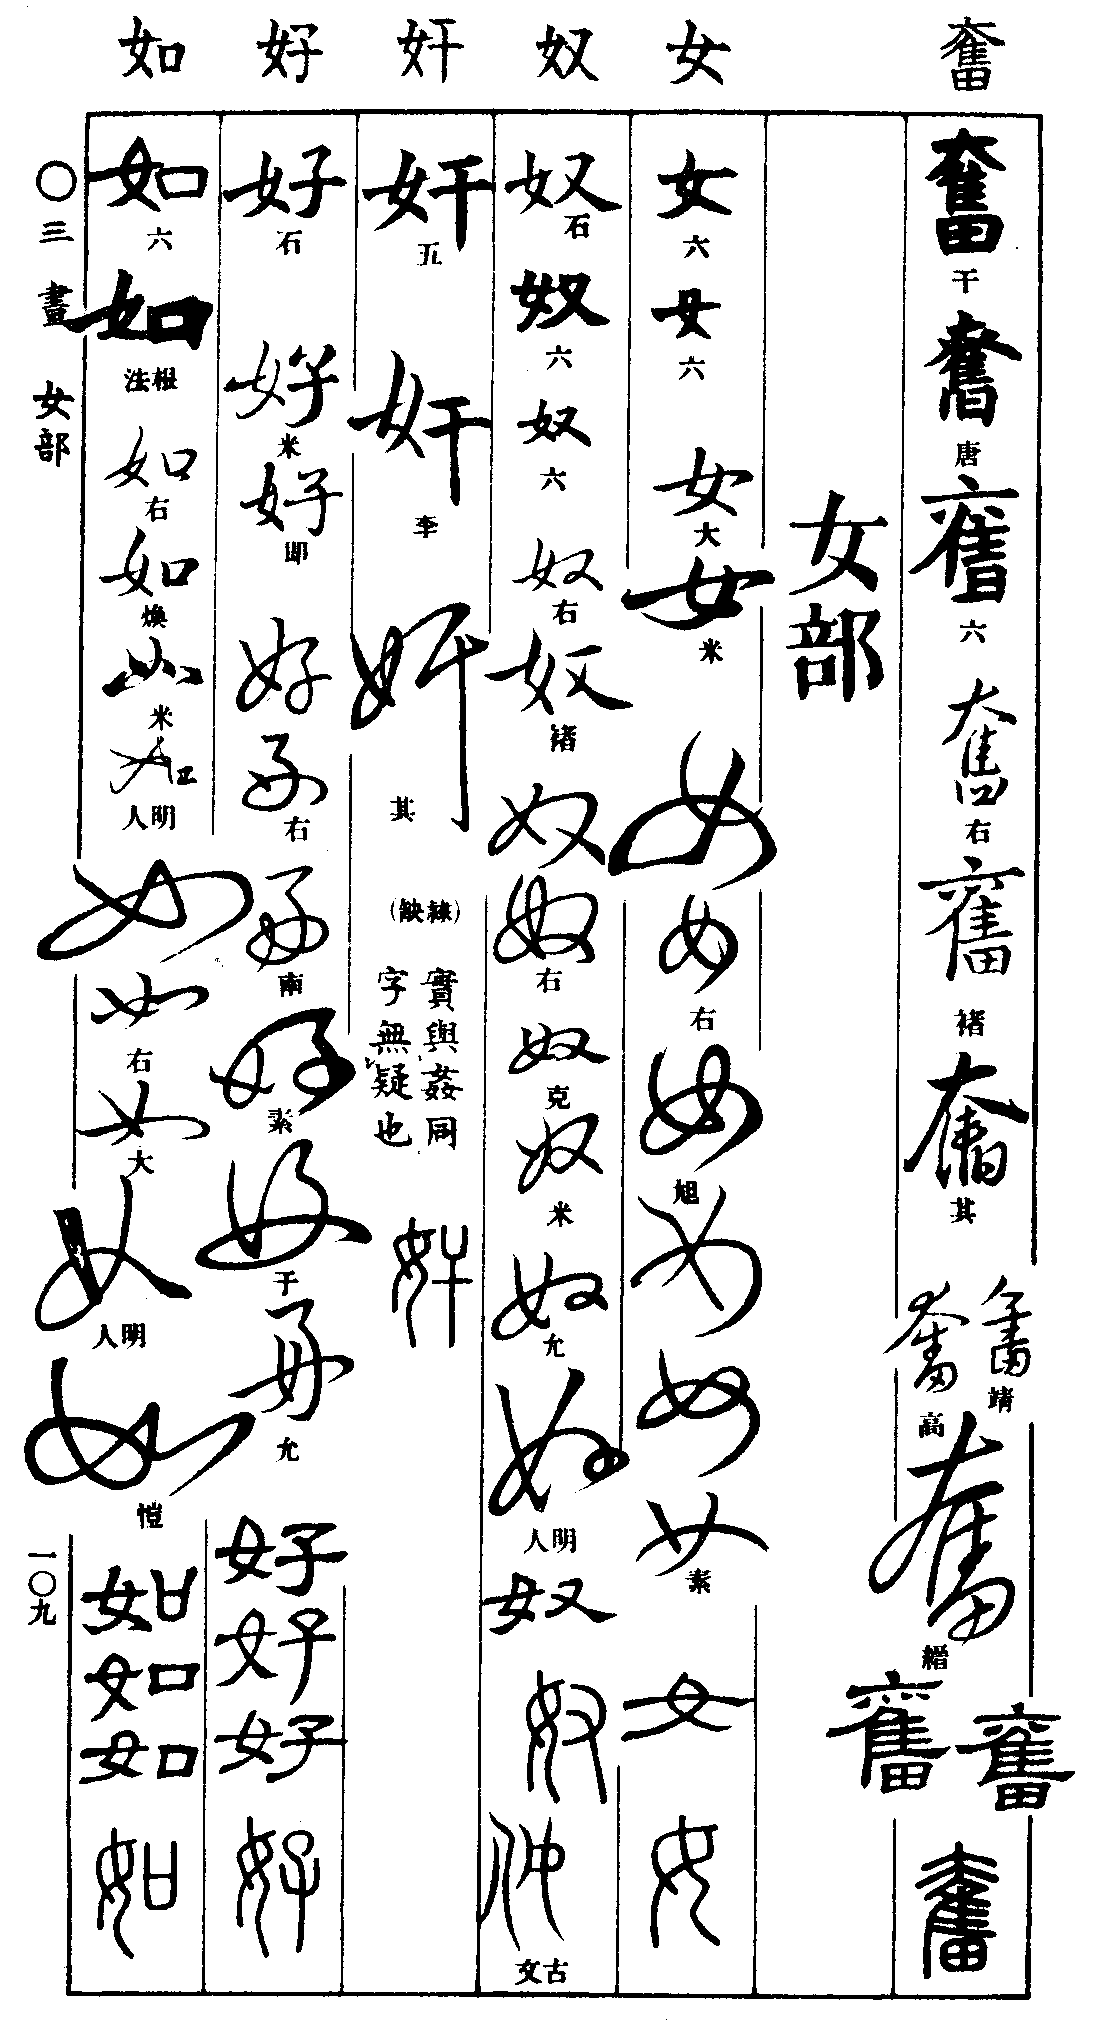 奮 女 奴 奸 好 如
奮
干
奮
唐
奮
六
奮
右
奮
褚
奮
其
奮
靖
奮
高
奮
縉
奮
奮
奮
女部
女
六
女
六
女
大
女
米
女
女
右
女
旭
女
女
女
素
女
女
奴
石
奴
六
奴
六
奴
右
奴
褚
奴
奴
右
奴
克
奴
米
奴
允
奴
明人
奴
奴
古文
奸
五
奸
李
奸
其
(隸缺)
實與姦同
字無疑也
奸
好
石
好
米
好
即
好
好
右
好
南
好
素
好
于
好
允
好
好
好
好
如
六
如
根法
如
右
如
煥
如
米
如
明人
如
如
右
如
大
如
明人
如
愷
如
如
如
如
〇三畫 女部
一〇九